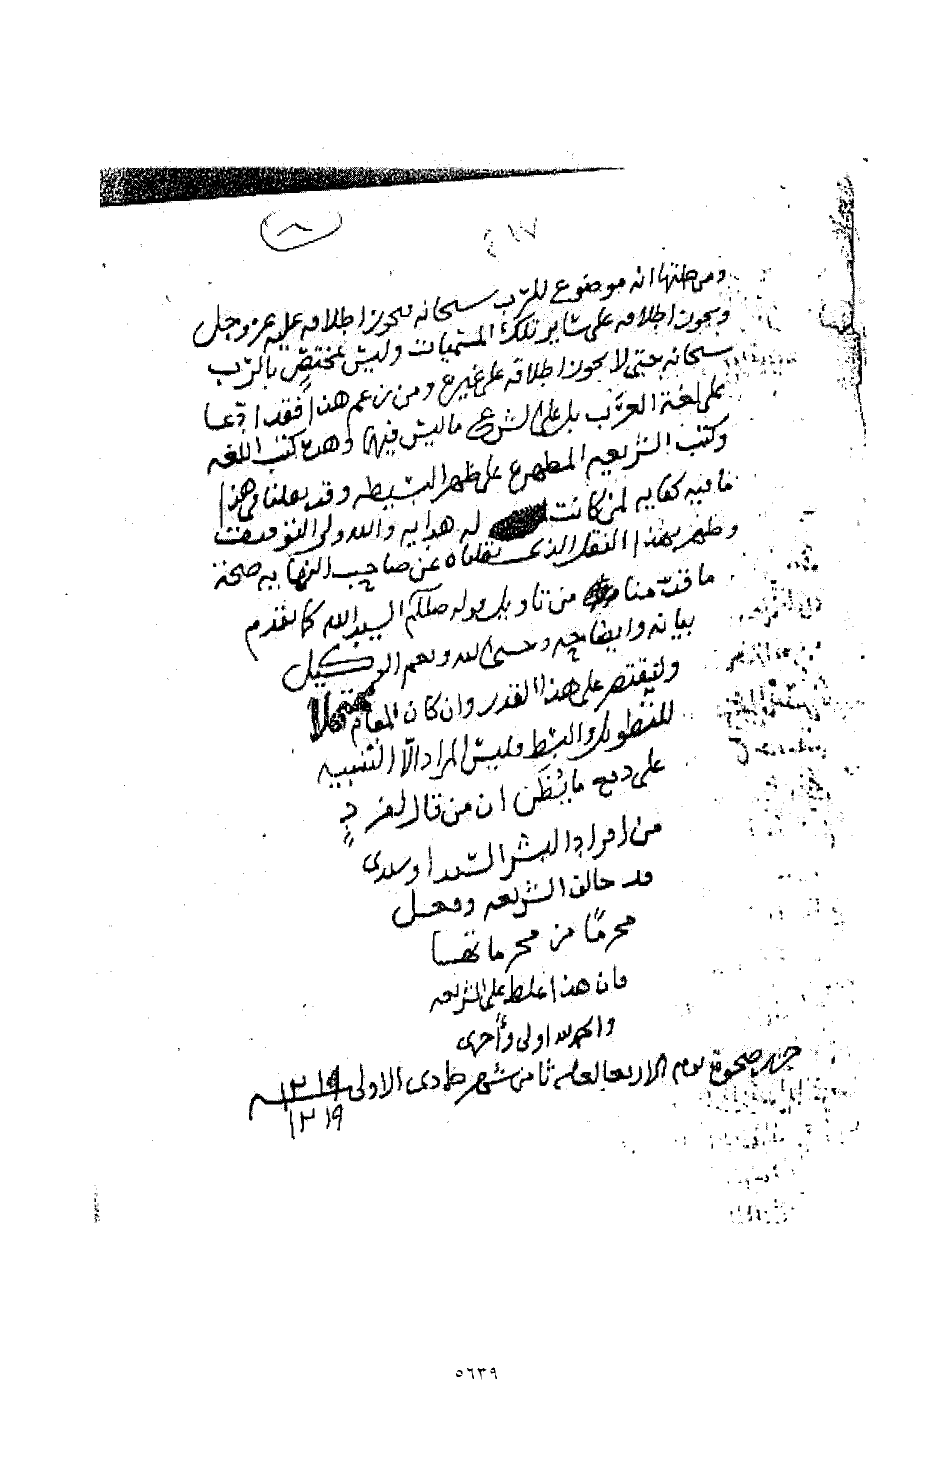 ٨
٤١٧
ومن جملتها انه موضوع للرب سبحانه فيجوز اطلاقه عليه عز وجل
ويجوز اطلاقه على ساير تلك المسميات وليس بمختص بالرب
سبحانه حتى لا يجوز اطلاقه على غيره ومن زعم هذا فقد ادعا
على لغة العرب بل على الشرع ما ليس فيها وهذه كتب اللغه
وكتب الشريعه المطهره على ظهر البسيطه وقد نقلنا في هذا
ما فيه كفايه لمن كانت له هدايه والله ولي التوفيق
وظهر بهذا النقل الذي نقلناه عن صاحب النهايه صحة
ما قدمنا من تاويل قوله صللم السيد الله كما تقدم
بيانه وايضاحه وحسبي الله ونعم الوكيل
ولنقتصر على هذا القدر وان كان المقام محتملا
للتطويل والبسط فليس المراد الا التنبيه
على دفع ما يظن ان من قال لفرد
من افراد البشر السيد او سيدي
قد خالف الشريعه وفعل
محرما من محرماتها
فان هذا غلط على الشريعه
والحمد لله اولى وأحرى
حرر ضحوة يوم الاربعا لعله ثامن شهر جمادى الاولى ١٢١٩ سنه
١٢١٩
٥٦٣٩